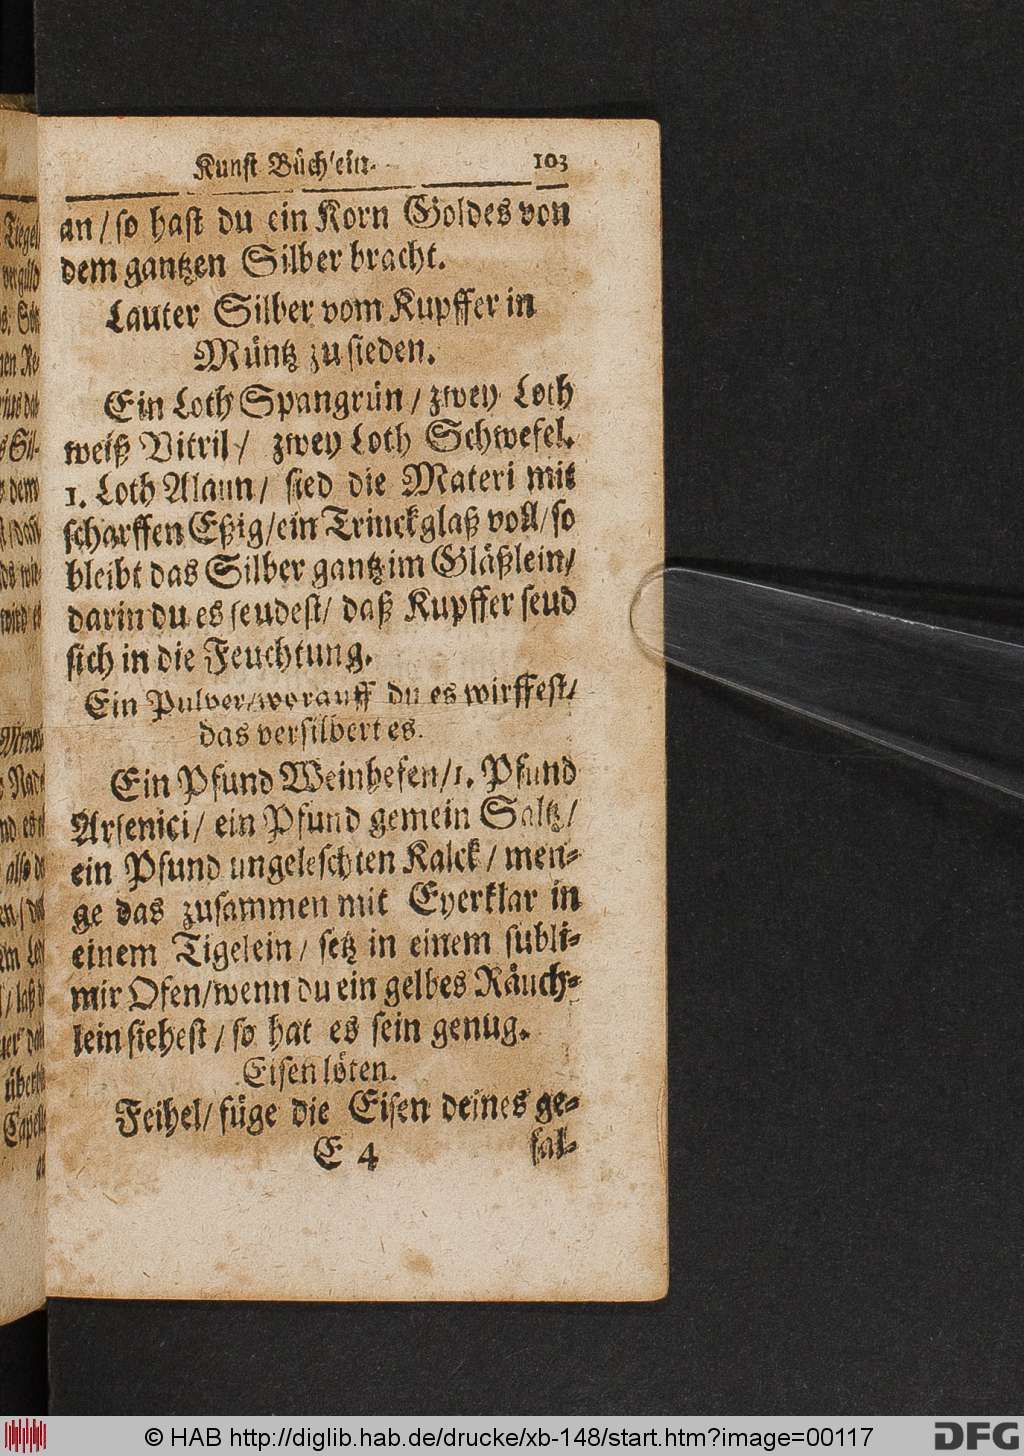 Kunst Büchlein. 103
an / so hast du ein Korn Goldes von
dem gantzen Silber bracht.
Lauter Silber vom Kupffer in
Müntz zu sieden.
Ein Loth Spangrün / zwey Loth
weiß Vitril / zwey Loth Schwefel.
1. Loth Alaun / sied die Materi mit
scharffen Eßig / ein Trinckglaß voll / so
bleibt das Silber gantz im Gläßlein /
darin du es seudest / daß Kupffer seud
sich in die Feuchtung.
Ein Pulver / worauff du es wirffest /
das versilbert es.
Ein Pfund Weinhefen / 1. Pfund
Arsenici / ein Pfund gemein Saltz /
ein Pfund ungeleschten Kalck / men-
ge das zusammen mit Eyerklar in
einem Tigelein / setz in einem subli-
mir Ofen / wenn du ein gelbes Räuch-
lein siehest / so hat es sein genug.
Eisen löten.
Feihel / füge die Eisen deines ge-
E 4 fal-
© HAB http://diglib.hab.de/drucke/xb-148/start.htm?image=00117
DFG